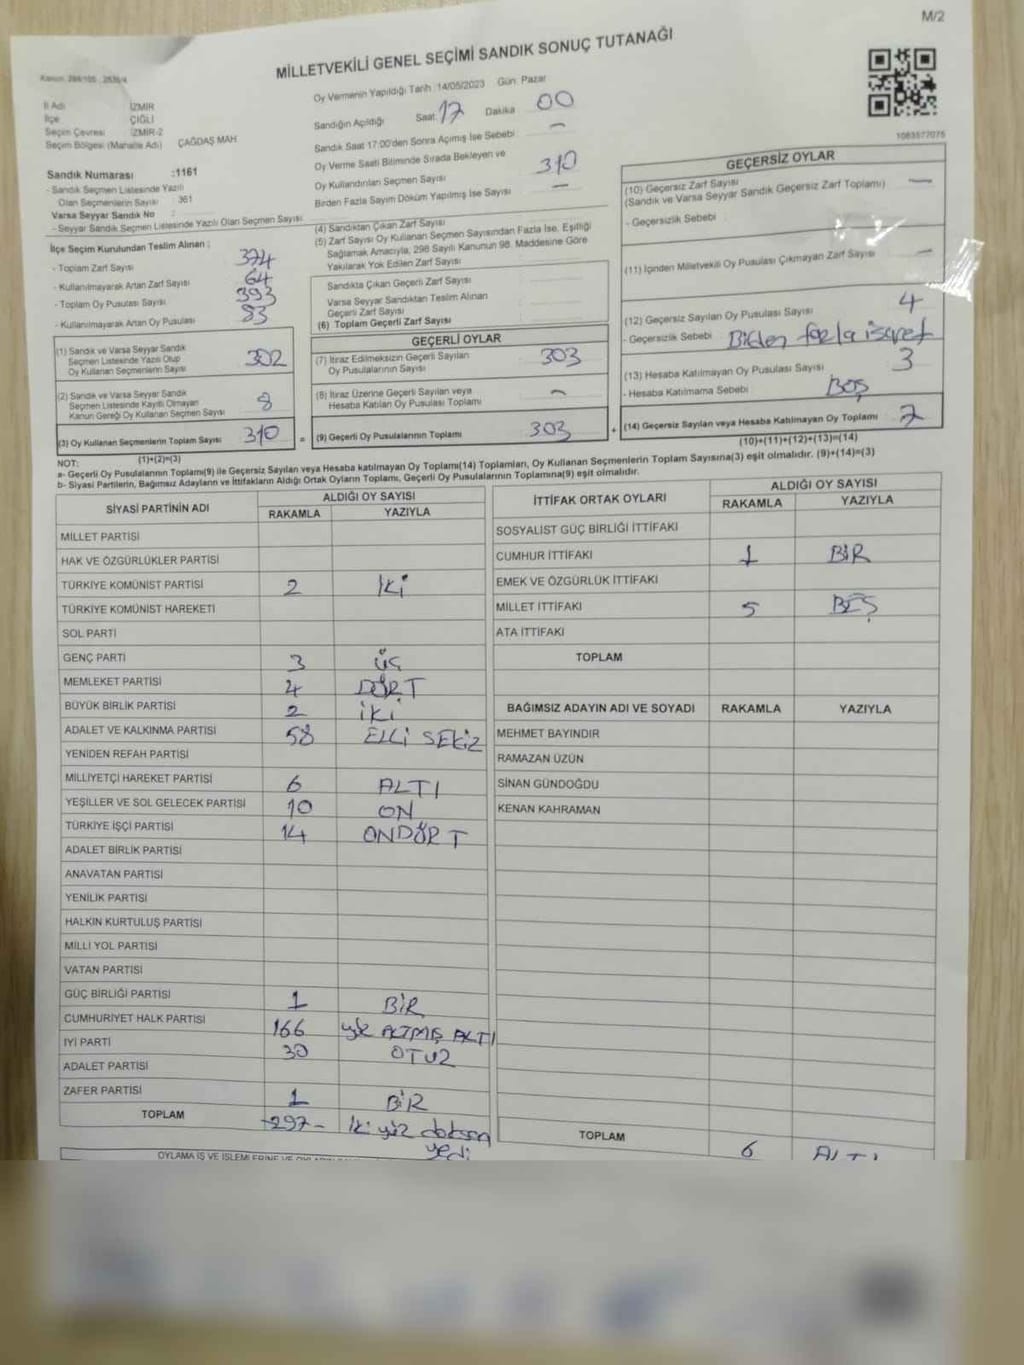 M/2
MİLLETVEKİLİ GENEL SEÇİMİ SANDIK SONUÇ TUTANAĞI
İl Adı İZMİR
İlçe ÇİĞLİ
Seçim Çevresi İZMİR-2
Seçim Bölgesi (Mahalle Adı) ÇAĞDAŞ MAH
Sandık Numarası :1161
- Sandık Seçmen Listesinde Yazılı
Olan Seçmenlerin Sayısı : 361
Varsa Seyyar Sandık No :
- Seyyar Sandık Seçmen Listesinde Yazılı Olan Seçmen Sayısı
Oy Vermenin Yapıldığı Tarih :14/05/2023 Gün: Pazar
Sandığın Açıldığı Saat: 17 Dakika 00
Sandık Saat 17:00'den Sonra Açımış İse Sebebi -
Oy Verme Saati Bitiminde Sırada Bekleyen ve
Oy Kullandırılan Seçmen Sayısı 310
Birden Fazla Sayım Döküm Yapılmış İse Sayısı -
1083577075
İlçe Seçim Kurulundan Teslim Alınan :
- Toplam Zarf Sayısı 374
- Kullanılmayarak Artan Zarf Sayısı 64
- Toplam Oy Pusulası Sayısı 393
- Kullanılmayarak Artan Oy Pusulası 83
(1) Sandık ve Varsa Seyyar Sandık
Seçmen Listesinde Yazılı Olup
Oy Kullanan Seçmenlerin Sayısı 302
(2) Sandık ve Varsa Seyyar Sandık
Seçmen Listesinde Kayıtlı Olmayan
Kanun Gereği Oy Kullanan Seçmen Sayısı 8
(3) Oy Kullanan Seçmenlerin Toplam Sayısı 310 =
(1)+(2)=(3)
(4) Sandıktan Çıkan Zarf Sayısı
(5) Zarf Sayısı Oy Kullanan Seçmen Sayısından Fazla İse, Eşitliği
Sağlamak Amacıyla, 298 Sayılı Kanunun 98. Maddesine Göre
Yakılarak Yok Edilen Zarf Sayısı
Sandıkta Çıkan Geçerli Zarf Sayısı
Varsa Seyyar Sandıktan Teslim Alınan
Geçerli Zarf Sayısı
(6) Toplam Geçerli Zarf Sayısı
GEÇERLİ OYLAR
(7) İtiraz Edilmeksizin Geçerli Sayılan
Oy Pusulalarının Sayısı 303
(8) İtiraz Üzerine Geçerli Sayılan veya
Hesaba Katılan Oy Pusulası Toplamı -
(9) Geçerli Oy Pusulalarının Toplamı 303 +
GEÇERSİZ OYLAR
(10) Geçersiz Zarf Sayısı
(Sandık ve Varsa Seyyar Sandık Geçersiz Zarf Toplamı) -
- Geçersizlik Sebebi
(11) İçinden Milletvekili Oy Pusulası Çıkmayan Zarf Sayısı -
(12) Geçersiz Sayılan Oy Pusulası Sayısı 4
- Geçersizlik Sebebi Birden fazla işaret
(13) Hesaba Katılmayan Oy Pusulası Sayısı 3
- Hesaba Katılmama Sebebi Boş
(14) Geçersiz Sayılan veya Hesaba Katılmayan Oy Toplamı 7
(10)+(11)+(12)+(13)=(14)
NOT:
a- Geçerli Oy Pusulalarının Toplamı(9) ile Geçersiz Sayılan veya Hesaba katılmayan Oy Toplamı(14) Toplamları, Oy Kullanan Seçmenlerin Toplam Sayısına(3) eşit olmalıdır. (9)+(14)=(3)
b- Siyasi Partilerin, Bağımsız Adayların ve İttifakların Aldığı Ortak Oyların Toplamı, Geçerli Oy Pusulalarının Toplamına(9) eşit olmalıdır.
SİYASİ PARTİNİN ADI ALDIĞI OY SAYISI
RAKAMLA YAZIYLA
MİLLET PARTİSİ
HAK VE ÖZGÜRLÜKLER PARTİSİ
TÜRKİYE KOMÜNİST PARTİSİ 2 İki
TÜRKİYE KOMÜNİST HAREKETİ
SOL PARTİ
GENÇ PARTİ 3 ÜÇ
MEMLEKET PARTİSİ 4 DÖRT
BÜYÜK BİRLİK PARTİSİ 2 İKİ
ADALET VE KALKINMA PARTİSİ 58 ELLİ SEKİZ
YENİDEN REFAH PARTİSİ
MİLLİYETÇİ HAREKET PARTİSİ 6 ALTI
YEŞİLLER VE SOL GELECEK PARTİSİ 10 ON
TÜRKİYE İŞÇİ PARTİSİ 14 ONDÖRT
ADALET BİRLİK PARTİSİ
ANAVATAN PARTİSİ
YENİLİK PARTİSİ
HALKIN KURTULUŞ PARTİSİ
MİLLİ YOL PARTİSİ
VATAN PARTİSİ
GÜÇ BİRLİĞİ PARTİSİ 1 BİR
CUMHURİYET HALK PARTİSİ 166 yüz ALTMIŞ ALTI
İYİ PARTİ 30 OTUZ
ADALET PARTİSİ
ZAFER PARTİSİ 1 BİR
TOPLAM -297- İki yüz doksan yedi
İTTİFAK ORTAK OYLARI ALDIĞI OY SAYISI
RAKAMLA YAZIYLA
SOSYALİST GÜÇ BİRLİĞİ İTTİFAKI
CUMHUR İTTİFAKI 1 BİR
EMEK VE ÖZGÜRLÜK İTTİFAKI
MİLLET İTTİFAKI 5 BEŞ
ATA İTTİFAKI
TOPLAM
BAĞIMSIZ ADAYIN ADI VE SOYADI RAKAMLA YAZIYLA
MEHMET BAYINDIR
RAMAZAN ÜZÜN
SİNAN GÜNDOĞDU
KENAN KAHRAMAN
TOPLAM 6 ALTI